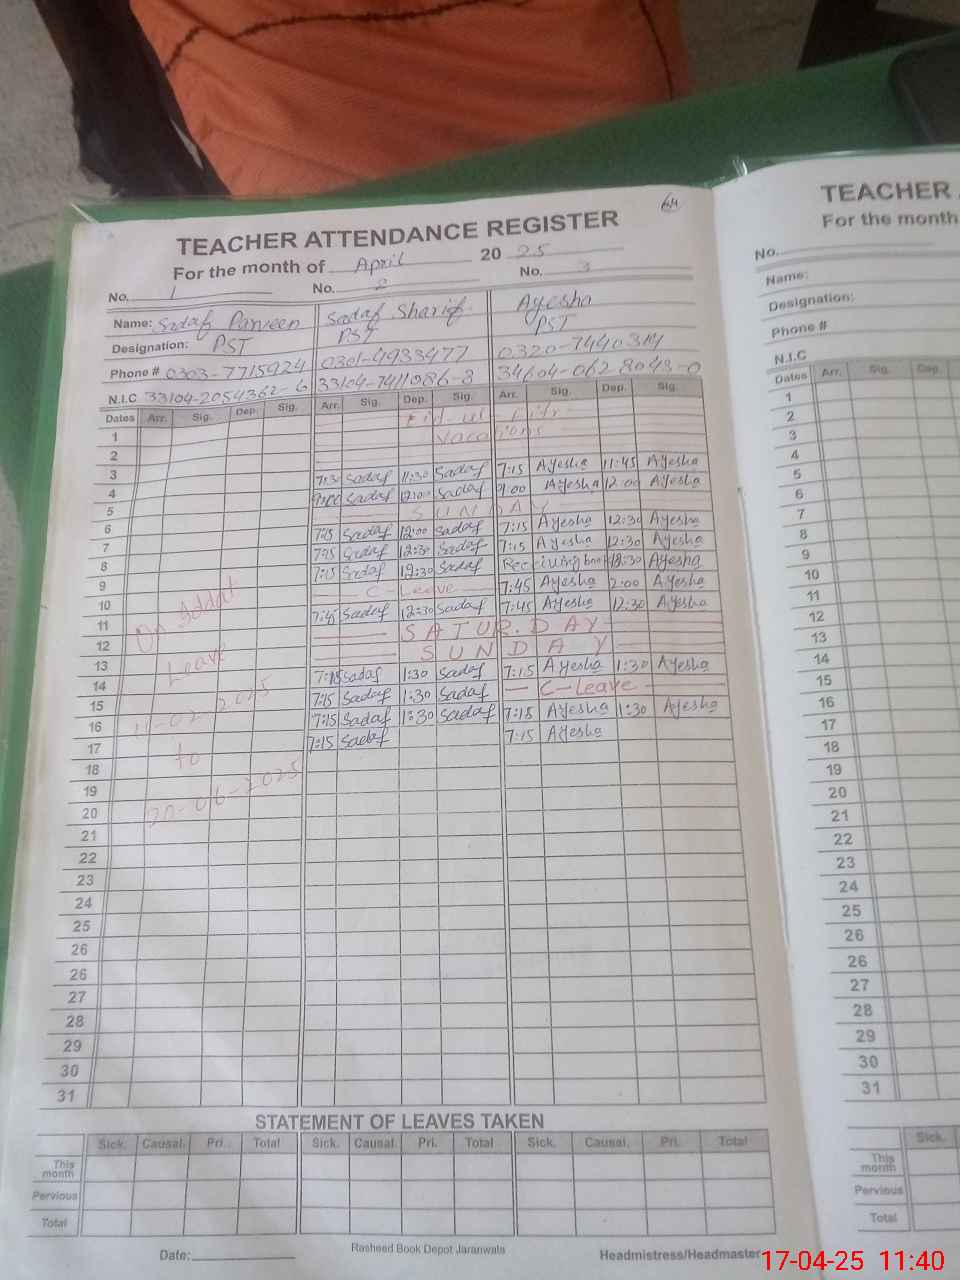 64
TEACHER ATTENDANCE REGISTER
For the month of April 20 25
No. 1 No. 2 No. 3
Name: Sadaf Parveen Sadaf Sharif Ayesha
Designation: PST PST PST
Phone # 0303-7715924 0301-4933477 0320-7440314
N.I.C 33104-2054362-6 33104-7411086-8 34604-0628043-0
Dates Arr. Sig. Dep. Sig. Arr. Sig. Dep. Sig. Arr. Sig. Dep. Sig.
1 Eid-ul-Fitr
2 Vacations
3 7:30 Sadaf 11:30 Sadaf 7:15 Ayesha 11:45 Ayesha
4 9:00 Sadaf 12:00 Sadaf 9:00 Ayesha 12:00 Ayesha
5 SUNDAY
6 7:15 Sadaf 12:00 Sadaf 7:15 Ayesha 12:30 Ayesha
7 7:15 Sadaf 12:30 Sadaf 7:15 Ayesha 12:30 Ayesha
8 7:15 Sadaf 12:30 Sadaf Receiving book 12:30 Ayesha
9 C-Leave 7:45 Ayesha 2:00 Ayesha
10 7:45 Sadaf 12:30 Sadaf 7:45 Ayesha 12:30 Ayesha
11 SATURDAY
12 SUNDAY
13 7:15 Sadaf 1:30 Sadaf 7:15 Ayesha 1:30 Ayesha
14 7:15 Sadaf 1:30 Sadaf C-Leave
15 7:15 Sadaf 1:30 Sadaf 7:15 Ayesha 1:30 Ayesha
16 7:15 Sadaf 7:15 Ayesha
17
18
19
20
21
22
23
24
25
26
26
27
28
29
30
31
On
Leave
11-02-2025
to
20-06-2025
STATEMENT OF LEAVES TAKEN
Sick. Causal. Pri. Total Sick. Causal. Pri. Total Sick. Causal. Pri. Total
This month
Pervious
Total
Date:
Rasheed Book Depot Jaranwala
Headmistress/Headmaster
TEACHER
For the month
No.
Name:
Designation:
Phone #
N.I.C
Dates Arr. Sig. Dep.
1
2
3
4
5
6
7
8
9
10
11
12
13
14
15
16
17
18
19
20
21
22
23
24
25
26
26
27
28
29
30
31
Sick.
This month
Pervious
Total
17-04-25 11:40